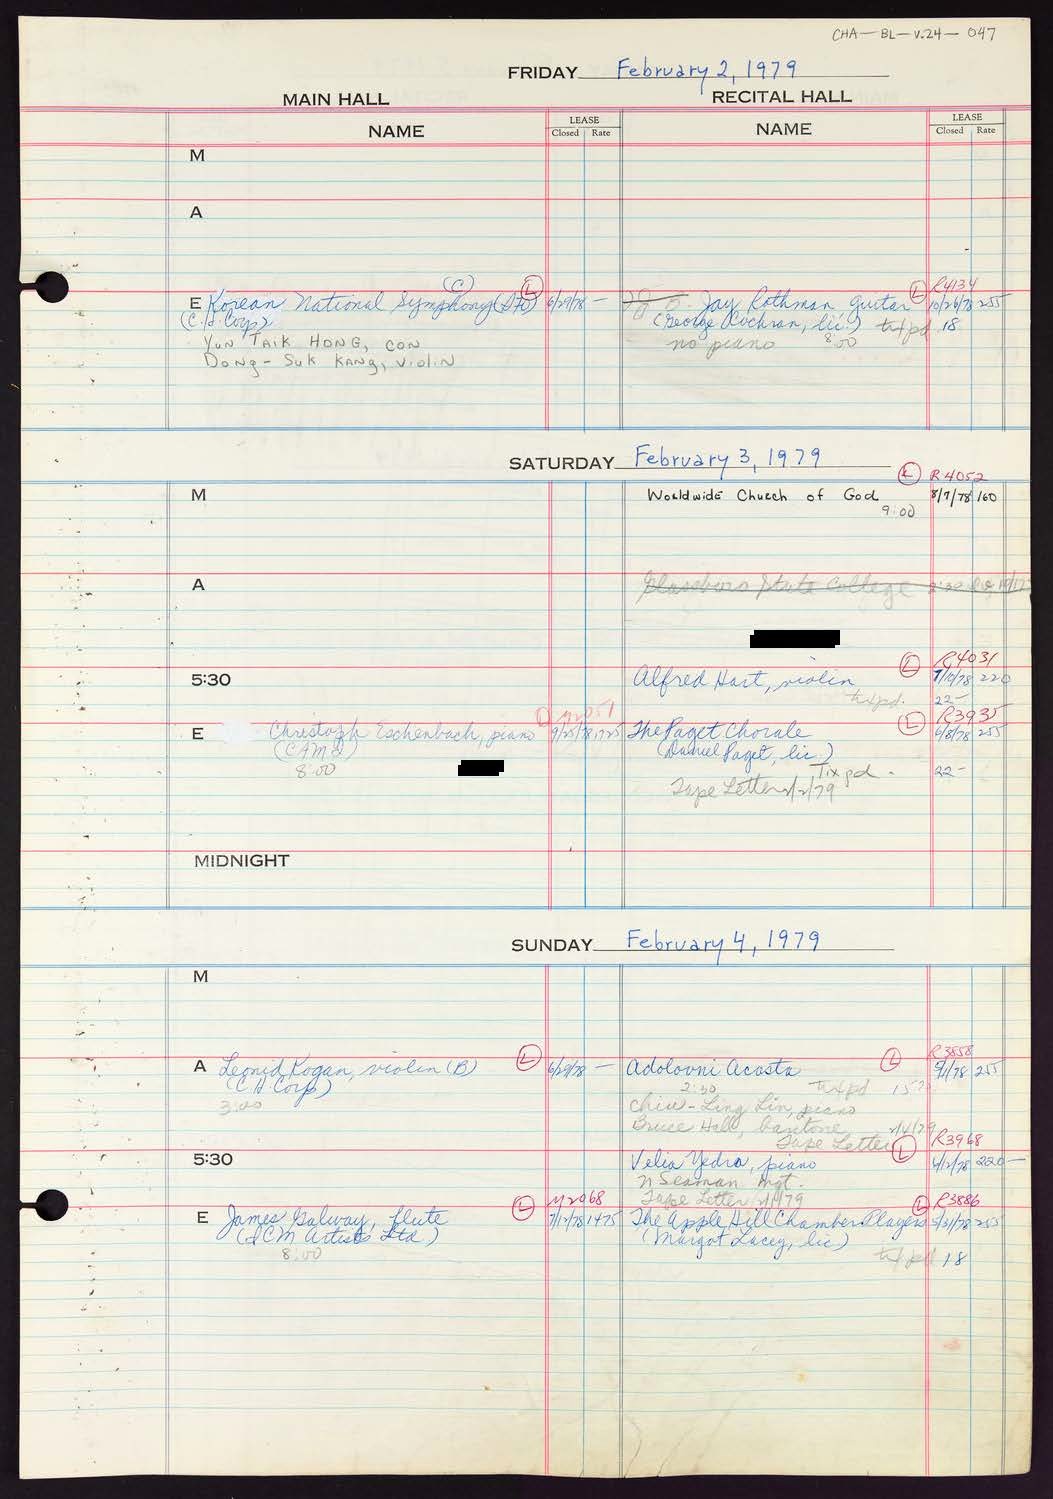 CHA-BL-V.24-047
FRIDAY February 2, 1979
MAIN HALL RECITAL HALL
NAME LEASE Closed Rate NAME LEASE Closed Rate
M
A
(C) (L) (L) R4134
E Korean National Symphony 6/29/78 — Jay Rothman, guitar 10/26/78 255
(C.H. Corp) (George Cochran, lic.) tix pd 18
YUN TAIK HONG, CON no piano 8:00
DONG-SUK KANG, VIOLIN
SATURDAY February 3, 1979
(L) R4052
M Worldwide Church of God 8/7/78 160
9:00
A Glassboro State College
(L) R4031
5:30 Alfred Hart, violin 7/10/78 220
tix pd. 22-
(L) R3935
E Christoph Eschenbach, piano 9/25/78 1725 The Paget Chorale 6/8/78 255
(CAMI) (Daniel Paget, lic.)
8:00 Tix pd. 22-
Tape Letter 2/2/79
MIDNIGHT
SUNDAY February 4, 1979
M
(L) (L) R3858
A Leonid Kogan, violin (B) 6/29/78 — Adolovni Acosta 9/1/78 255
(C H Corp) 2:30 tix pd
3:00 Chiu-Ling Lin, piano
Bruce Hall, baritone
Tape Letter (L) R3968
5:30 Velia Yedra, piano 4/12/78 220 —
N Seaman Mgt.
(L) M2068 Tape Letter (L) R3886
E James Galway, flute 7/17/78 1475 The Apple Hill Chamber Players 5/31/78 255
(ICM Artists Ltd) (Margot Lacey, lic)
8:00 tix pd 18